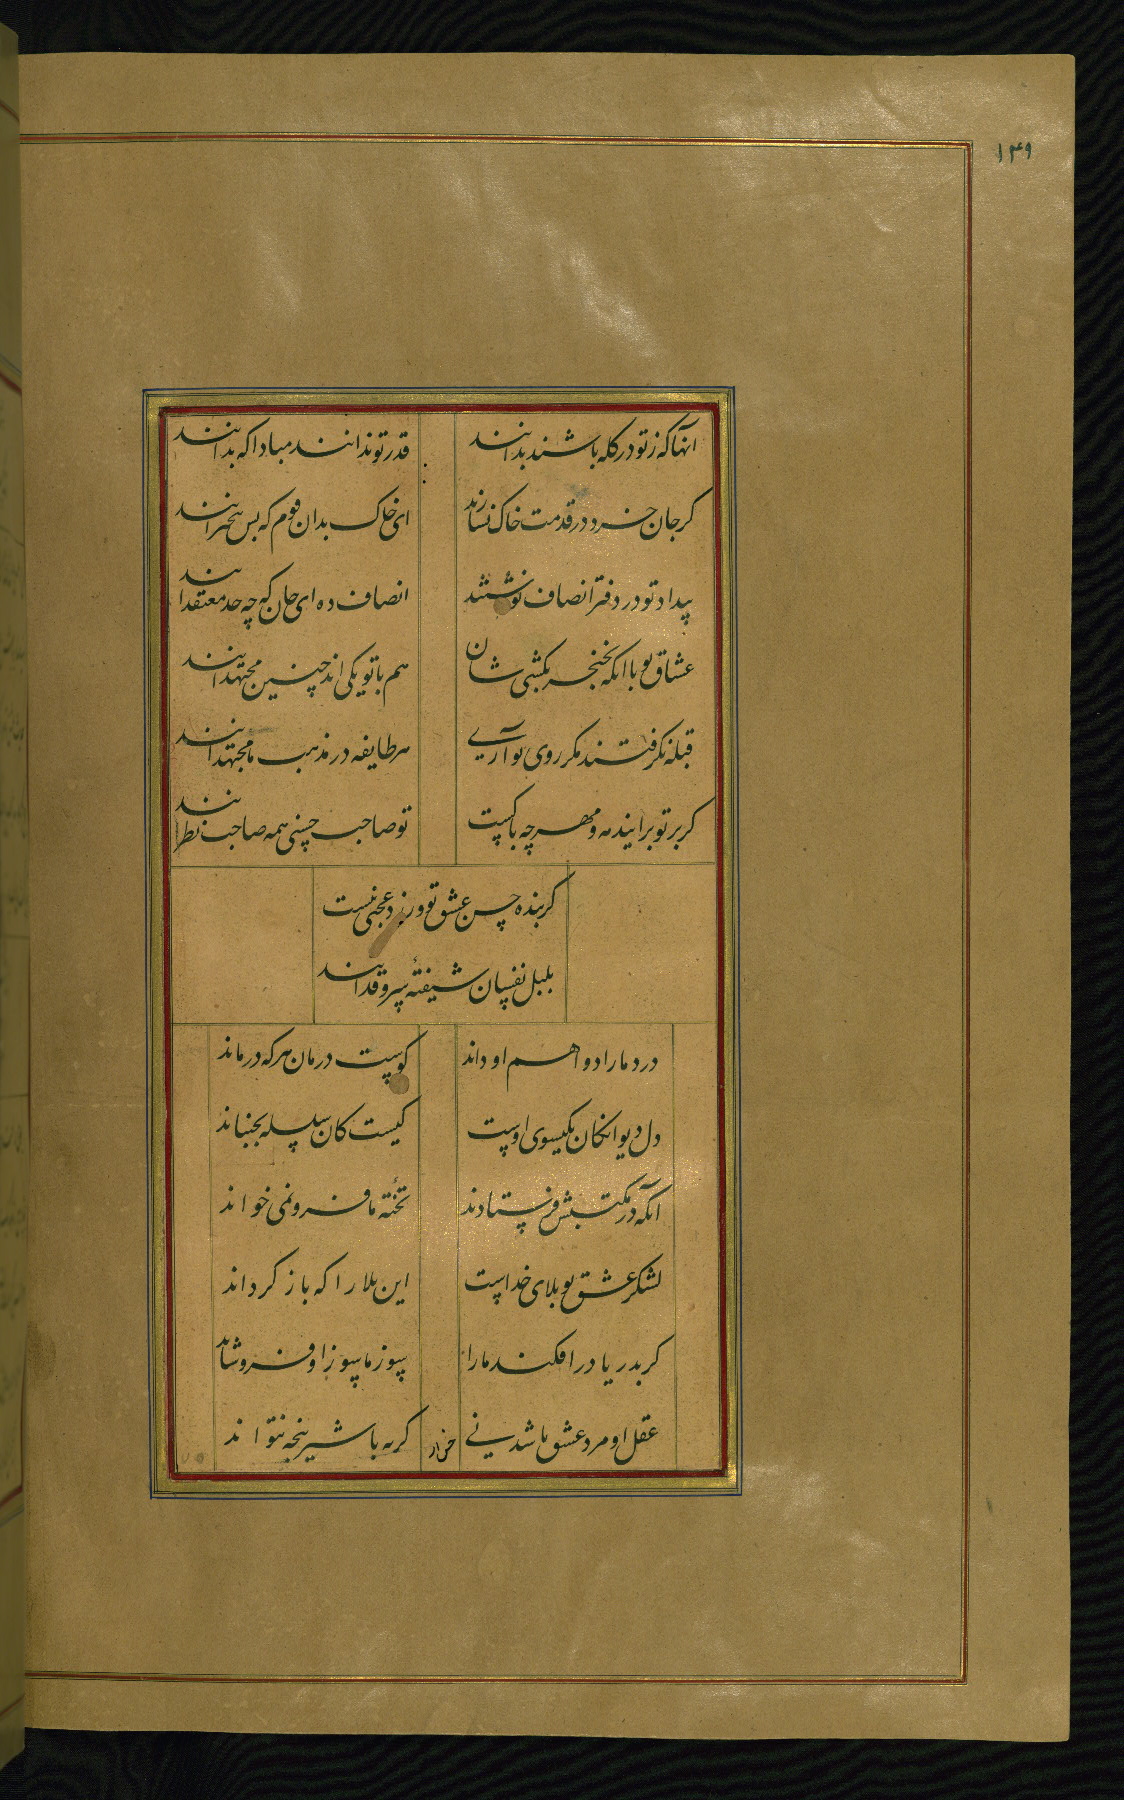 ۱۴۹
انها که ز تو در کله باشند بدانند
قدر تو ندانند مبادا که بدانند
کر جان خرد در قدمت خاک نسازند
ای خاک بدان قوم که بس بیخبرانند
بیداد تو در دفتر انصاف نوشتند
انصاف ده ای جان که چه حد معتقدانند
عشاق تو با انکه بخنجر بکشی شان
هم با تو یکی اند چنین مجتهدانند
قبله نکرفتند مکر روی تو آری
هر طایفه در مذهب ما مجتهدانند
کر بر تو برایند مه و مهر چه باکست
تو صاحب حسنی همه صاحب نظرانند
کر بنده حسن عشق تو ورزد عجبی نیست
بلبل نفسان شیفتهٔ سرو قدانند
درد ما را دوا هم او داند
کوست درمان هر که درماند
دل دیوانکان بکیسوی اوست
کیست کان سلسله بجنباند
آنکه در مکتبش فرستادند
تختهٔ ما فرو نمی خواند
لشکر عشق تو بلای خداست
این بلا را که باز کرداند
کر بدریا در افکند ما را
سوز ما سوز او فرو شاند
عقل او مرد عشق ما شد نی
کربه با شیر پنجه نتواند